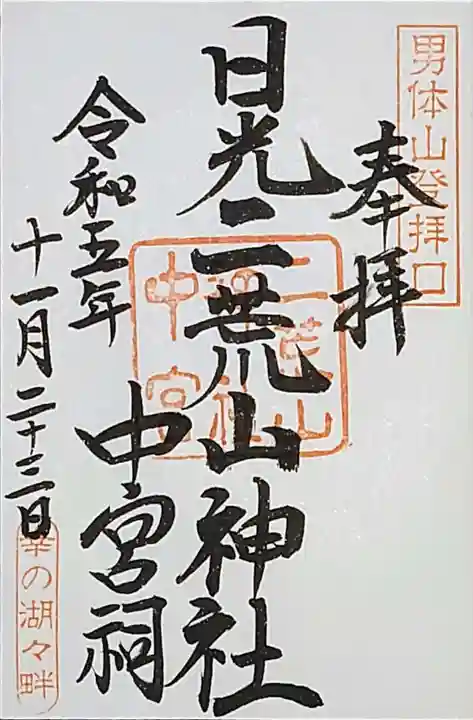 男体山登拝口
奉拝
日光二荒山神社
中宮祠
令和五年
十一月二十三日
幸の湖々畔